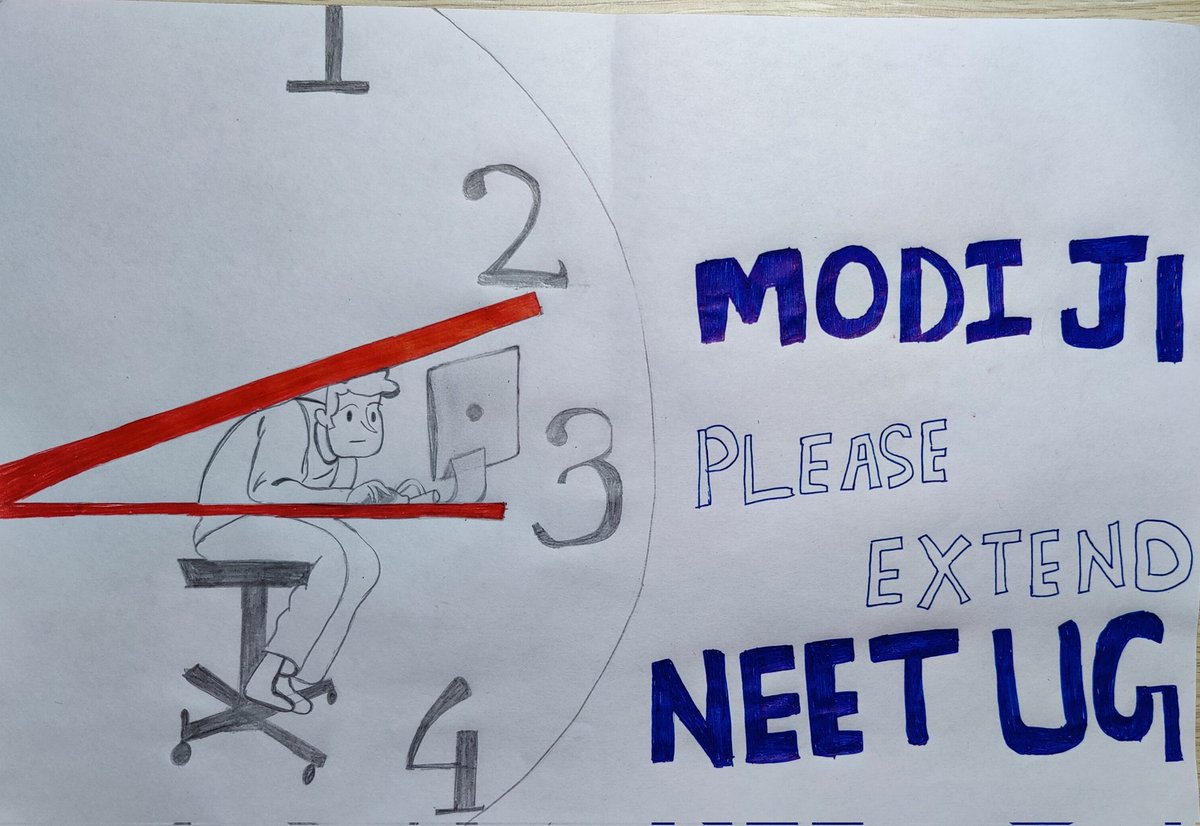 1
2
3
4
MODI JI
PLEASE
EXTEND
NEET UG